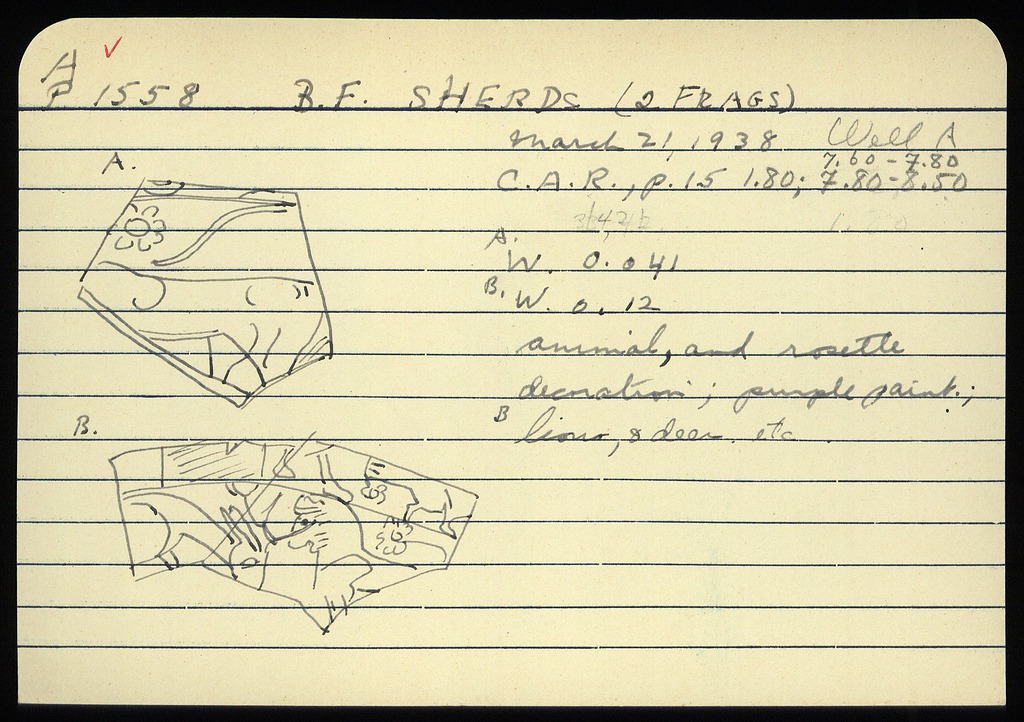 A
P 1558 B.F. SHERDS (2 FRAGS)
March 21, 1938 Well A
7.60 - 7.80
C.A.R., p.15 1.80; 7.80-8.50
A.
A.
W. 0.041
B. W. 0.12
animal, and rosette
decoration; purple paint;
B lions, & deer. etc
B.